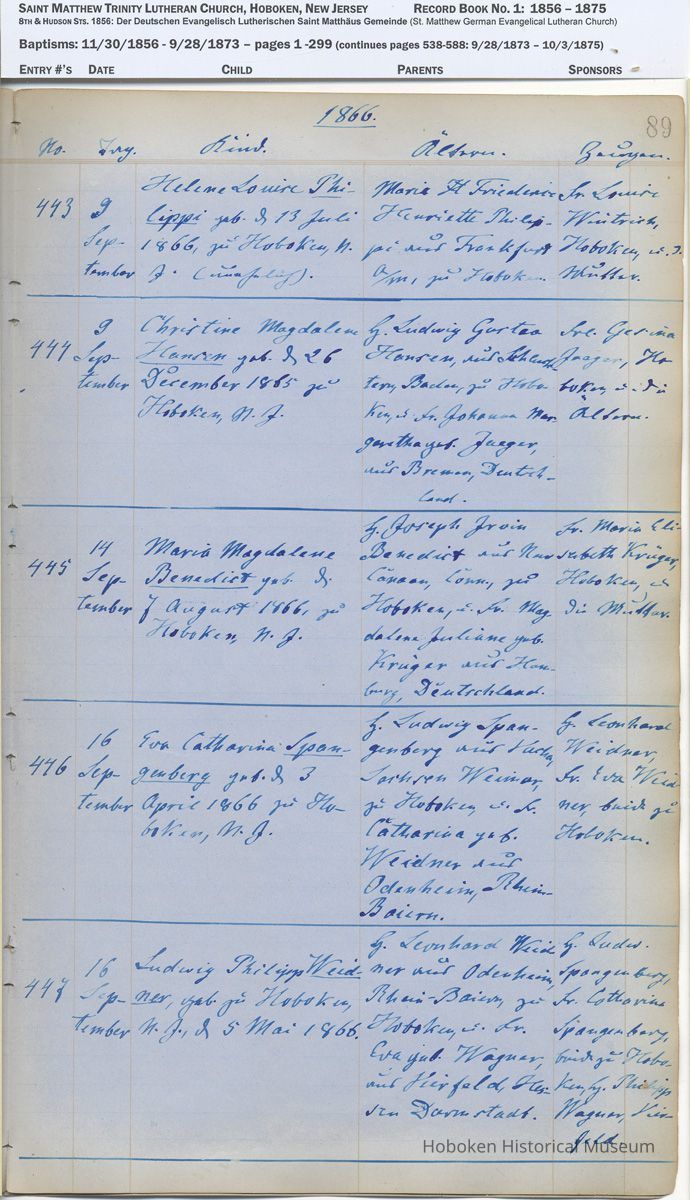 SAINT MATTHEW TRINITY LUTHERAN CHURCH, HOBOKEN, NEW JERSEY RECORD BOOK NO. 1: 1856 – 1875
8TH & HUDSON STS. 1856: Der Deutschen Evangelisch Lutherischen Saint Matthäus Gemeinde (St. Matthew German Evangelical Lutheran Church)
Baptisms: 11/30/1856 - 9/28/1873 – pages 1 -299 (continues pages 538-588: 9/28/1873 – 10/3/1875)
ENTRY #'S DATE CHILD PARENTS SPONSORS
1866.
89
No. Tag. Kind. Ältern. Zeugen.
443
9
Sep-
tember
Helene Louise Phi-
lippi geb. d. 13 Juli
1866, zu Hoboken, N.
J. (unehelig).
Maria H Friederice
Henriette Philip-
pi aus Frankfurt
a/m, zu Hoboken.
Fr. Louise
Wutrich,
Hoboken, u. d.
Mutter.
444
9
Sep-
tember
Christine Magdalene
Hansen geb. d. 26
December 1865 zu
Hoboken, N. J.
H. Ludwig Gustav
Hansen, aus
Baden, zu Hobo
ken, u. Fr. Johanna Mar-
garetha geb. Jaeger,
aus Bremen, Deutsch-
land.
Frl. Gesina
Jaeger, Ho-
boken, u. die
Ältern.
445
14
Sep-
tember
Maria Magdalene
Benedict geb. d.
7 August 1866, zu
Hoboken, N. J.
H. Joseph Irvin
Benedict aus New
Canaan, Conn., zu
Hoboken, u. Fr. Mag-
dalena Juliane geb.
Krüger aus Ham-
burg, Deutschland.
Fr. Maria Eli-
sabeth Krüger,
Hoboken, u.
die Mutter.
446
16
Sep-
tember
Eva Catharina Span-
genberg geb. d. 3
April 1866 zu Ho-
boken, N. J.
H. Ludwig Span-
genberg aus
Sachsen Weimar,
zu Hoboken, u. Fr.
Catharina geb.
Weidner aus
Odenheim, Rhein-
Baiern.
H. Leonhard
Weidner,
Fr. Eva Weid
ner, beide zu
Hoboken.
447
16
Sep-
tember
Ludwig Philipp Weid-
ner, geb. zu Hoboken,
N. J., d. 5 Mai 1866.
H. Leonhard Weid
ner aus Odenheim,
Rhein-Baiern, zu
Hoboken, u. Fr.
Eva geb. Wagner,
aus Hirfeld, Hes-
sen Darmstadt.
H. Ludw.
Spangenberg,
Fr. Catharina
Spangenberg,
beide zu Hobo-
ken, H. Philipp
Wagner,
feld.
Hoboken Historical Museum